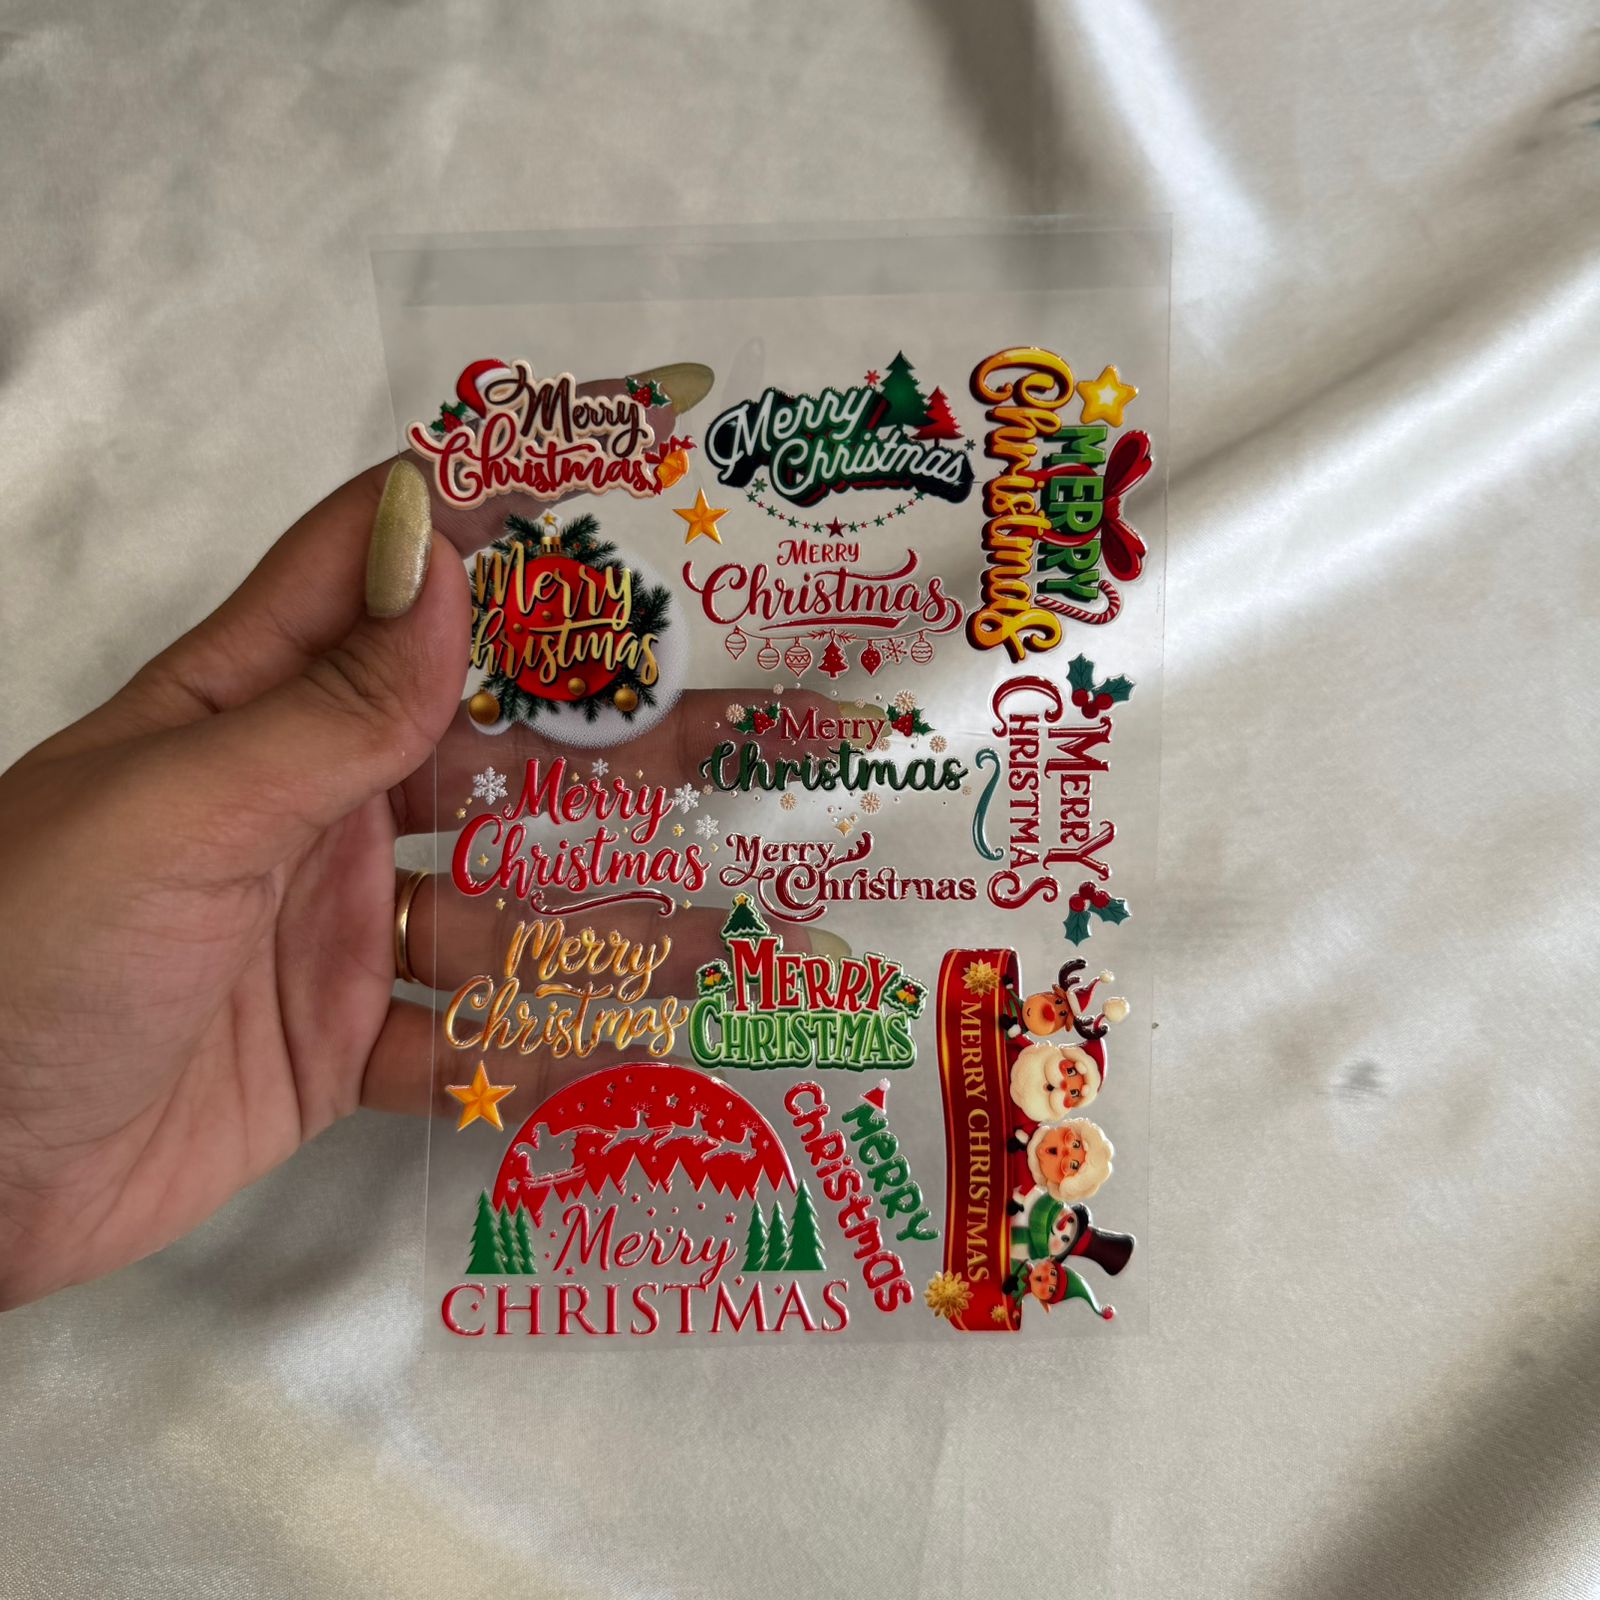 Merry
Christmas
Merry
Christmas
MERRY
Christmas
Merry
Christmas
MERRY
Christmas
Merry
Christmas
MERRY
CHRISTMAS
Merry
Christmas
Merry
Christmas
Merry
Christmas
MERRY
CHRISTMAS
MERRY CHRISTMAS
Merry
CHRISTMAS
MERRY
Christmas